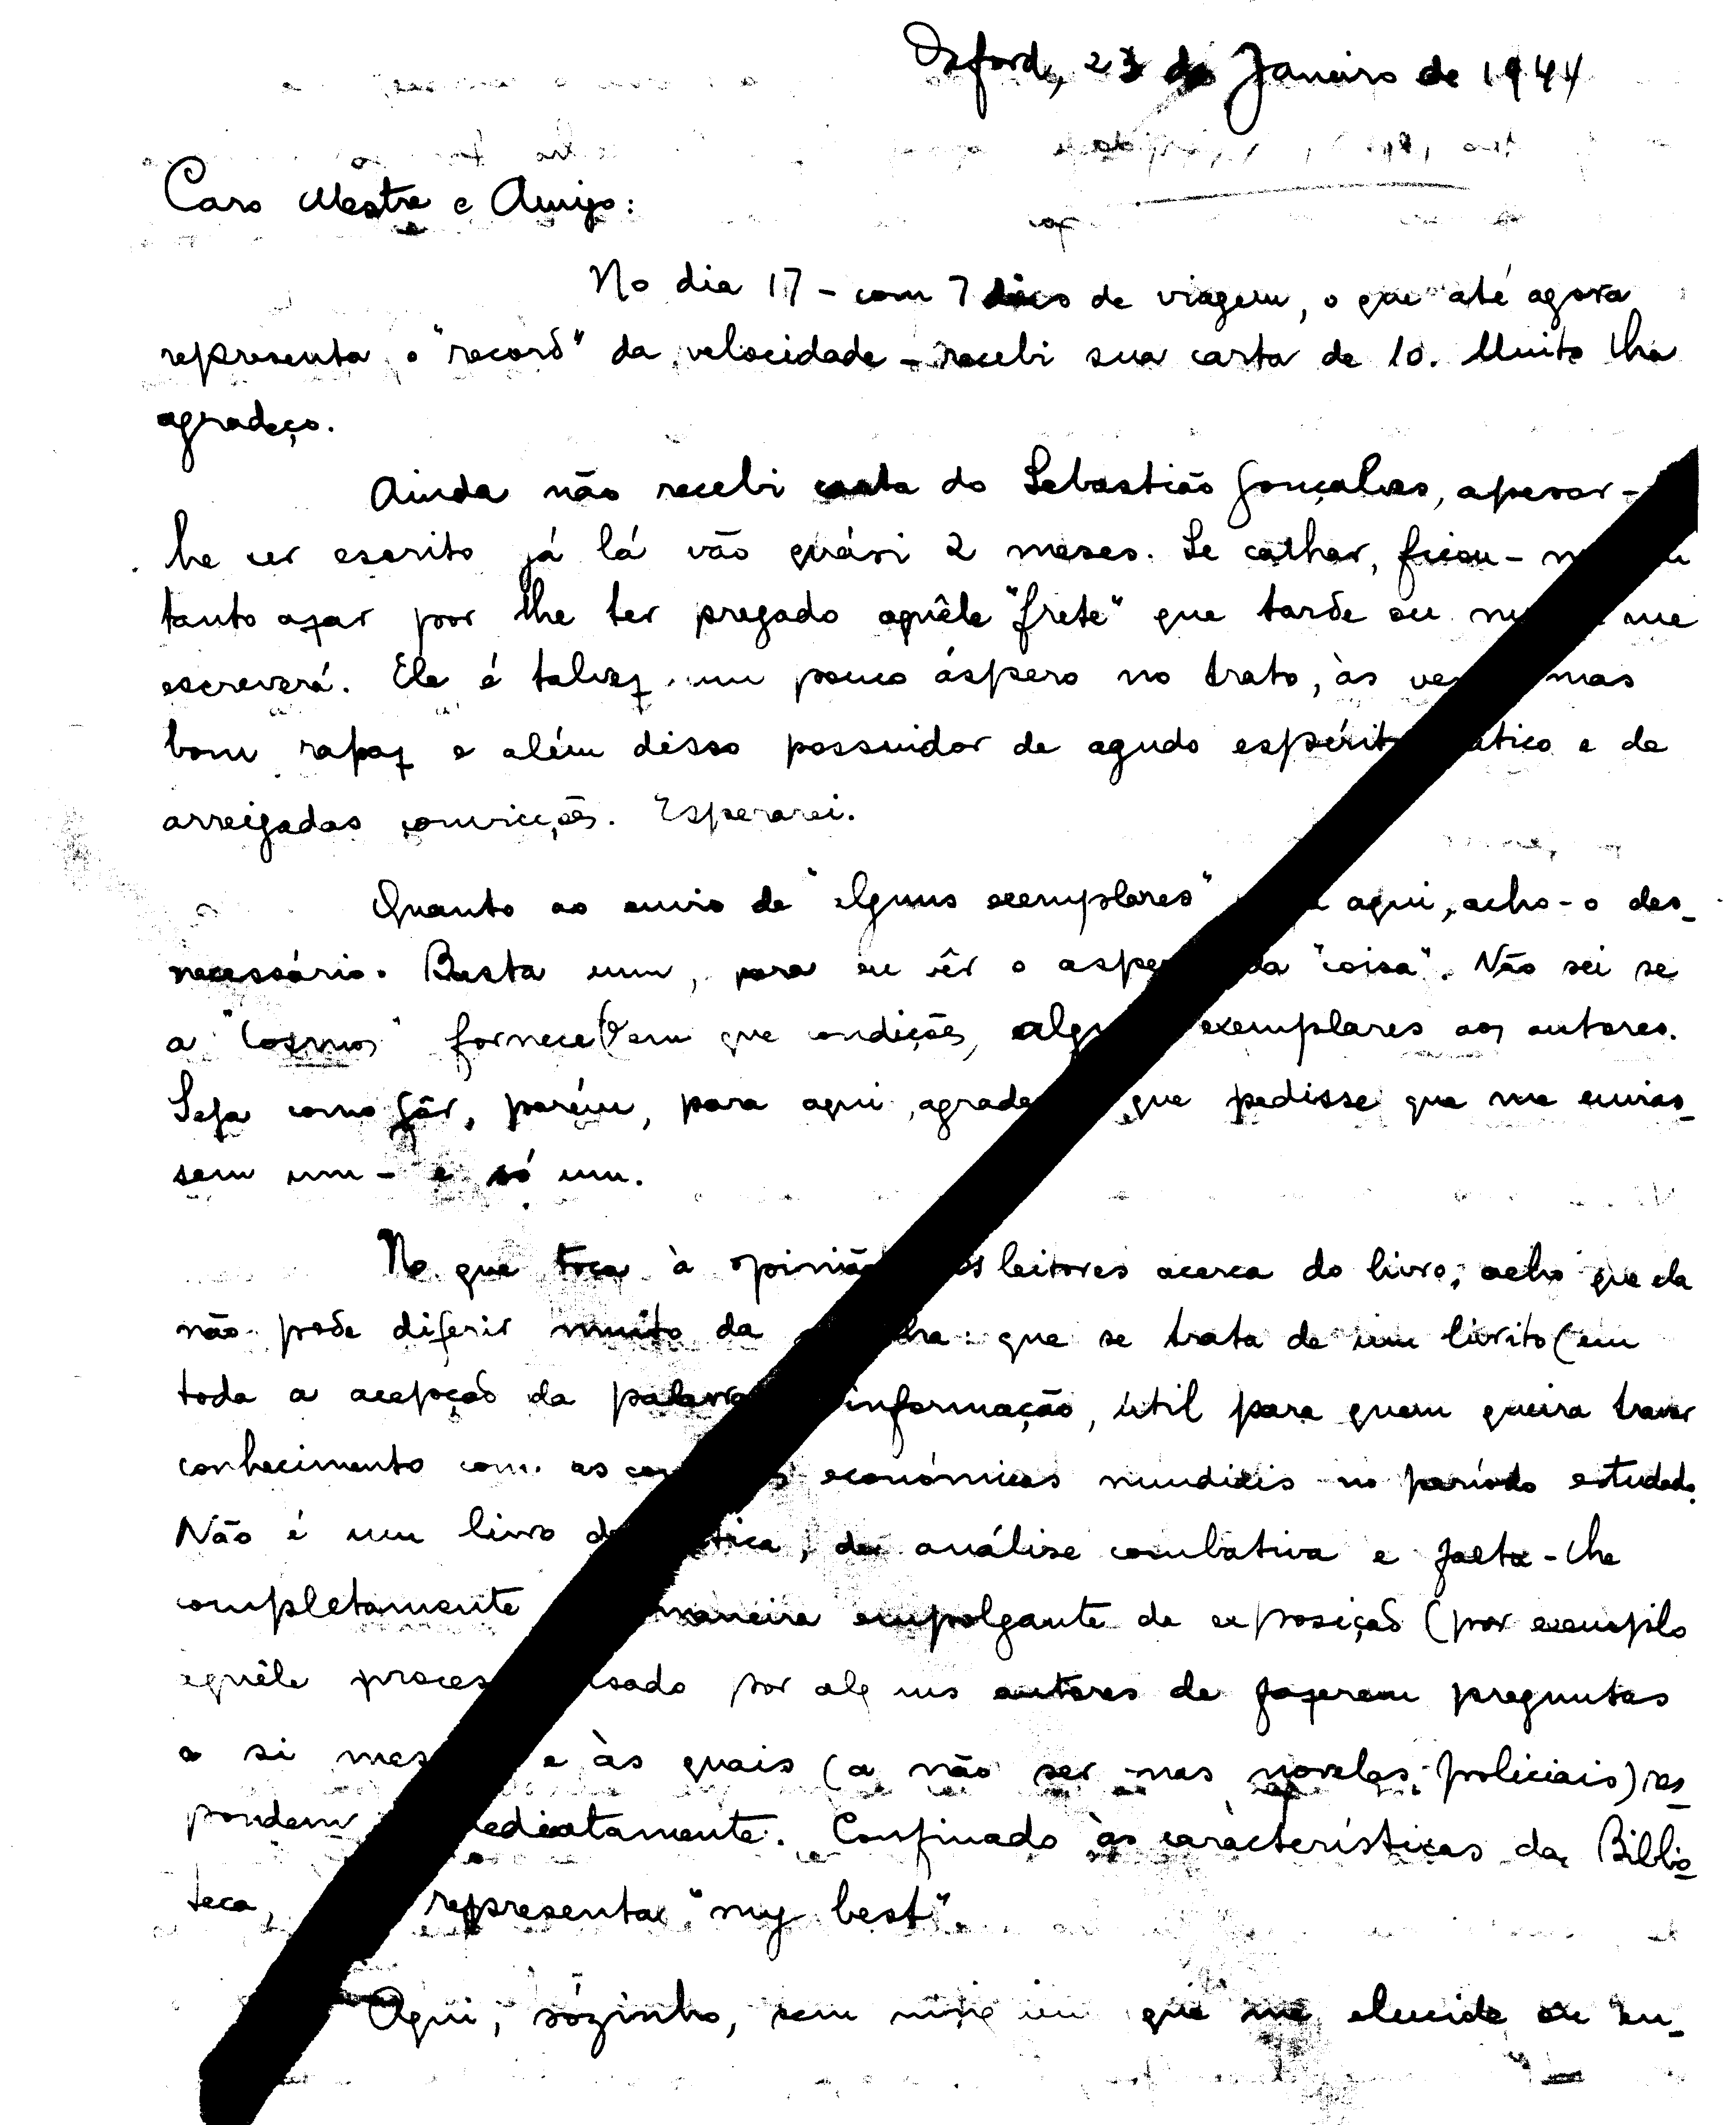 Oxford, 23 de Janeiro de 1944
Caro Mestre e Amigo:
No dia 17 - com 7 dias de viagem, o que até agora
representa o "record" da velocidade - recebi sua carta de 10. Muito lha
agradeço.
Ainda não recebi carta do Sebastião Gonçalves, apesar-
lhe ter escrito já lá vão quási 2 meses. Se calhar, ficou-
tanto azar por lhe ter pregado aquêle "frete" que tarde ou me
escreverá. Ele é talvez um pouco áspero no trato, às mas
bom rapaz e além disso possuidor de agudo e de
arreigadas convicções. Esperarei.
Quanto ao envio de "alguns exemplares" aqui, acho-o des-
necessário. Basta um, para eu vêr o da "coisa". Não sei se
a "Cosmos" fornece (e em que condições, exemplares aos autores.
Seja como fôr, porém, para aqui, que pedisse que me envias-
sem um - e só um.
No que toca à opinião leitores acerca do livro, acho que ela
não pode diferir muito da : que se trata de um livrito (em
toda a acepção da palavra informação, útil para quem queira travar
conhecimento com as económicas mundiais no período estudado.
Não é um livro , de análise combativa e falta-lhe
completamente maneira empolgante de exposição (por exemplo
aquêle usado por alguns autores de fazerem preguntas
a si e às quais (a não ser nas novelas policiais) res-
pondem . Confinado às caracteristicas da Biblio-
teca, representa "my best"
Aqui, sózinho, sem ninguém que me elucide ou en-